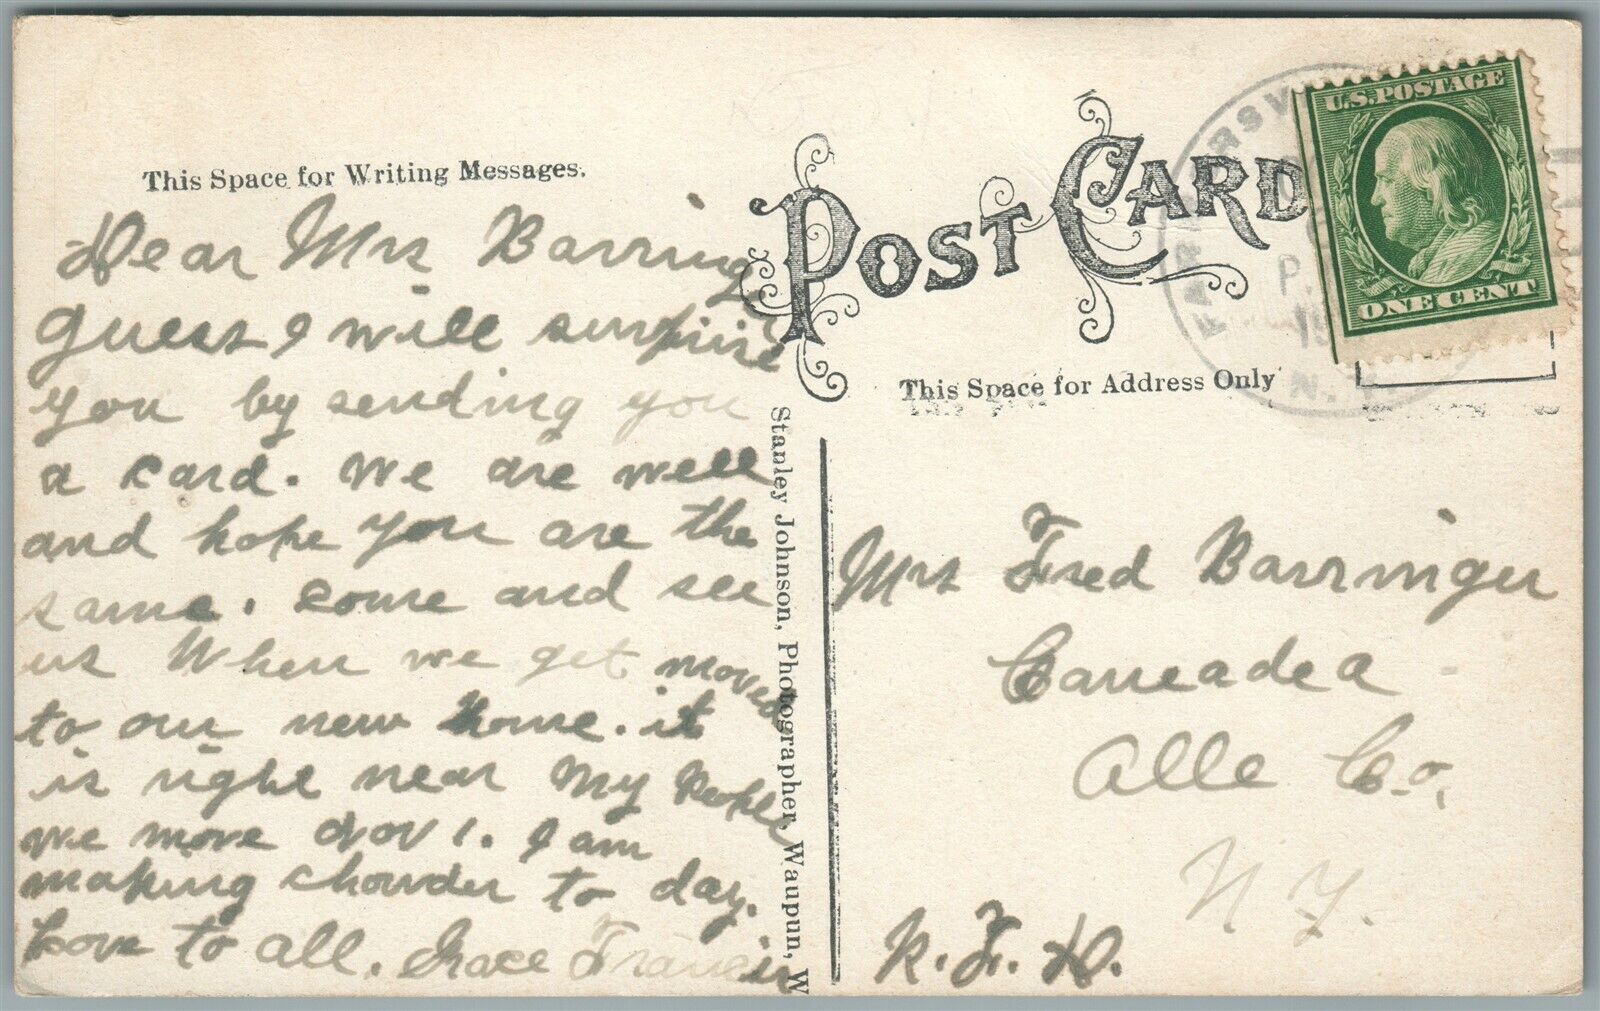 This Space for Writing Messages.
Dear Mrs Barring
guess I will surprise
you by sending you
a card. we are well
and hope you are the
same. come and see
us When we get moved
to our new home. it
is right near My People
we move Nov 1. I am
making chowder to day.
Love to all. Grace Francis
POST CARD
This Space for Address Only
Stanley Johnson, Photographer, Waupun, W
U.S. POSTAGE
ONE CENT
P.
19
N.
Mrs Fred Barringer
Caneadea
Alle Co.
N Y.
R. F. D.